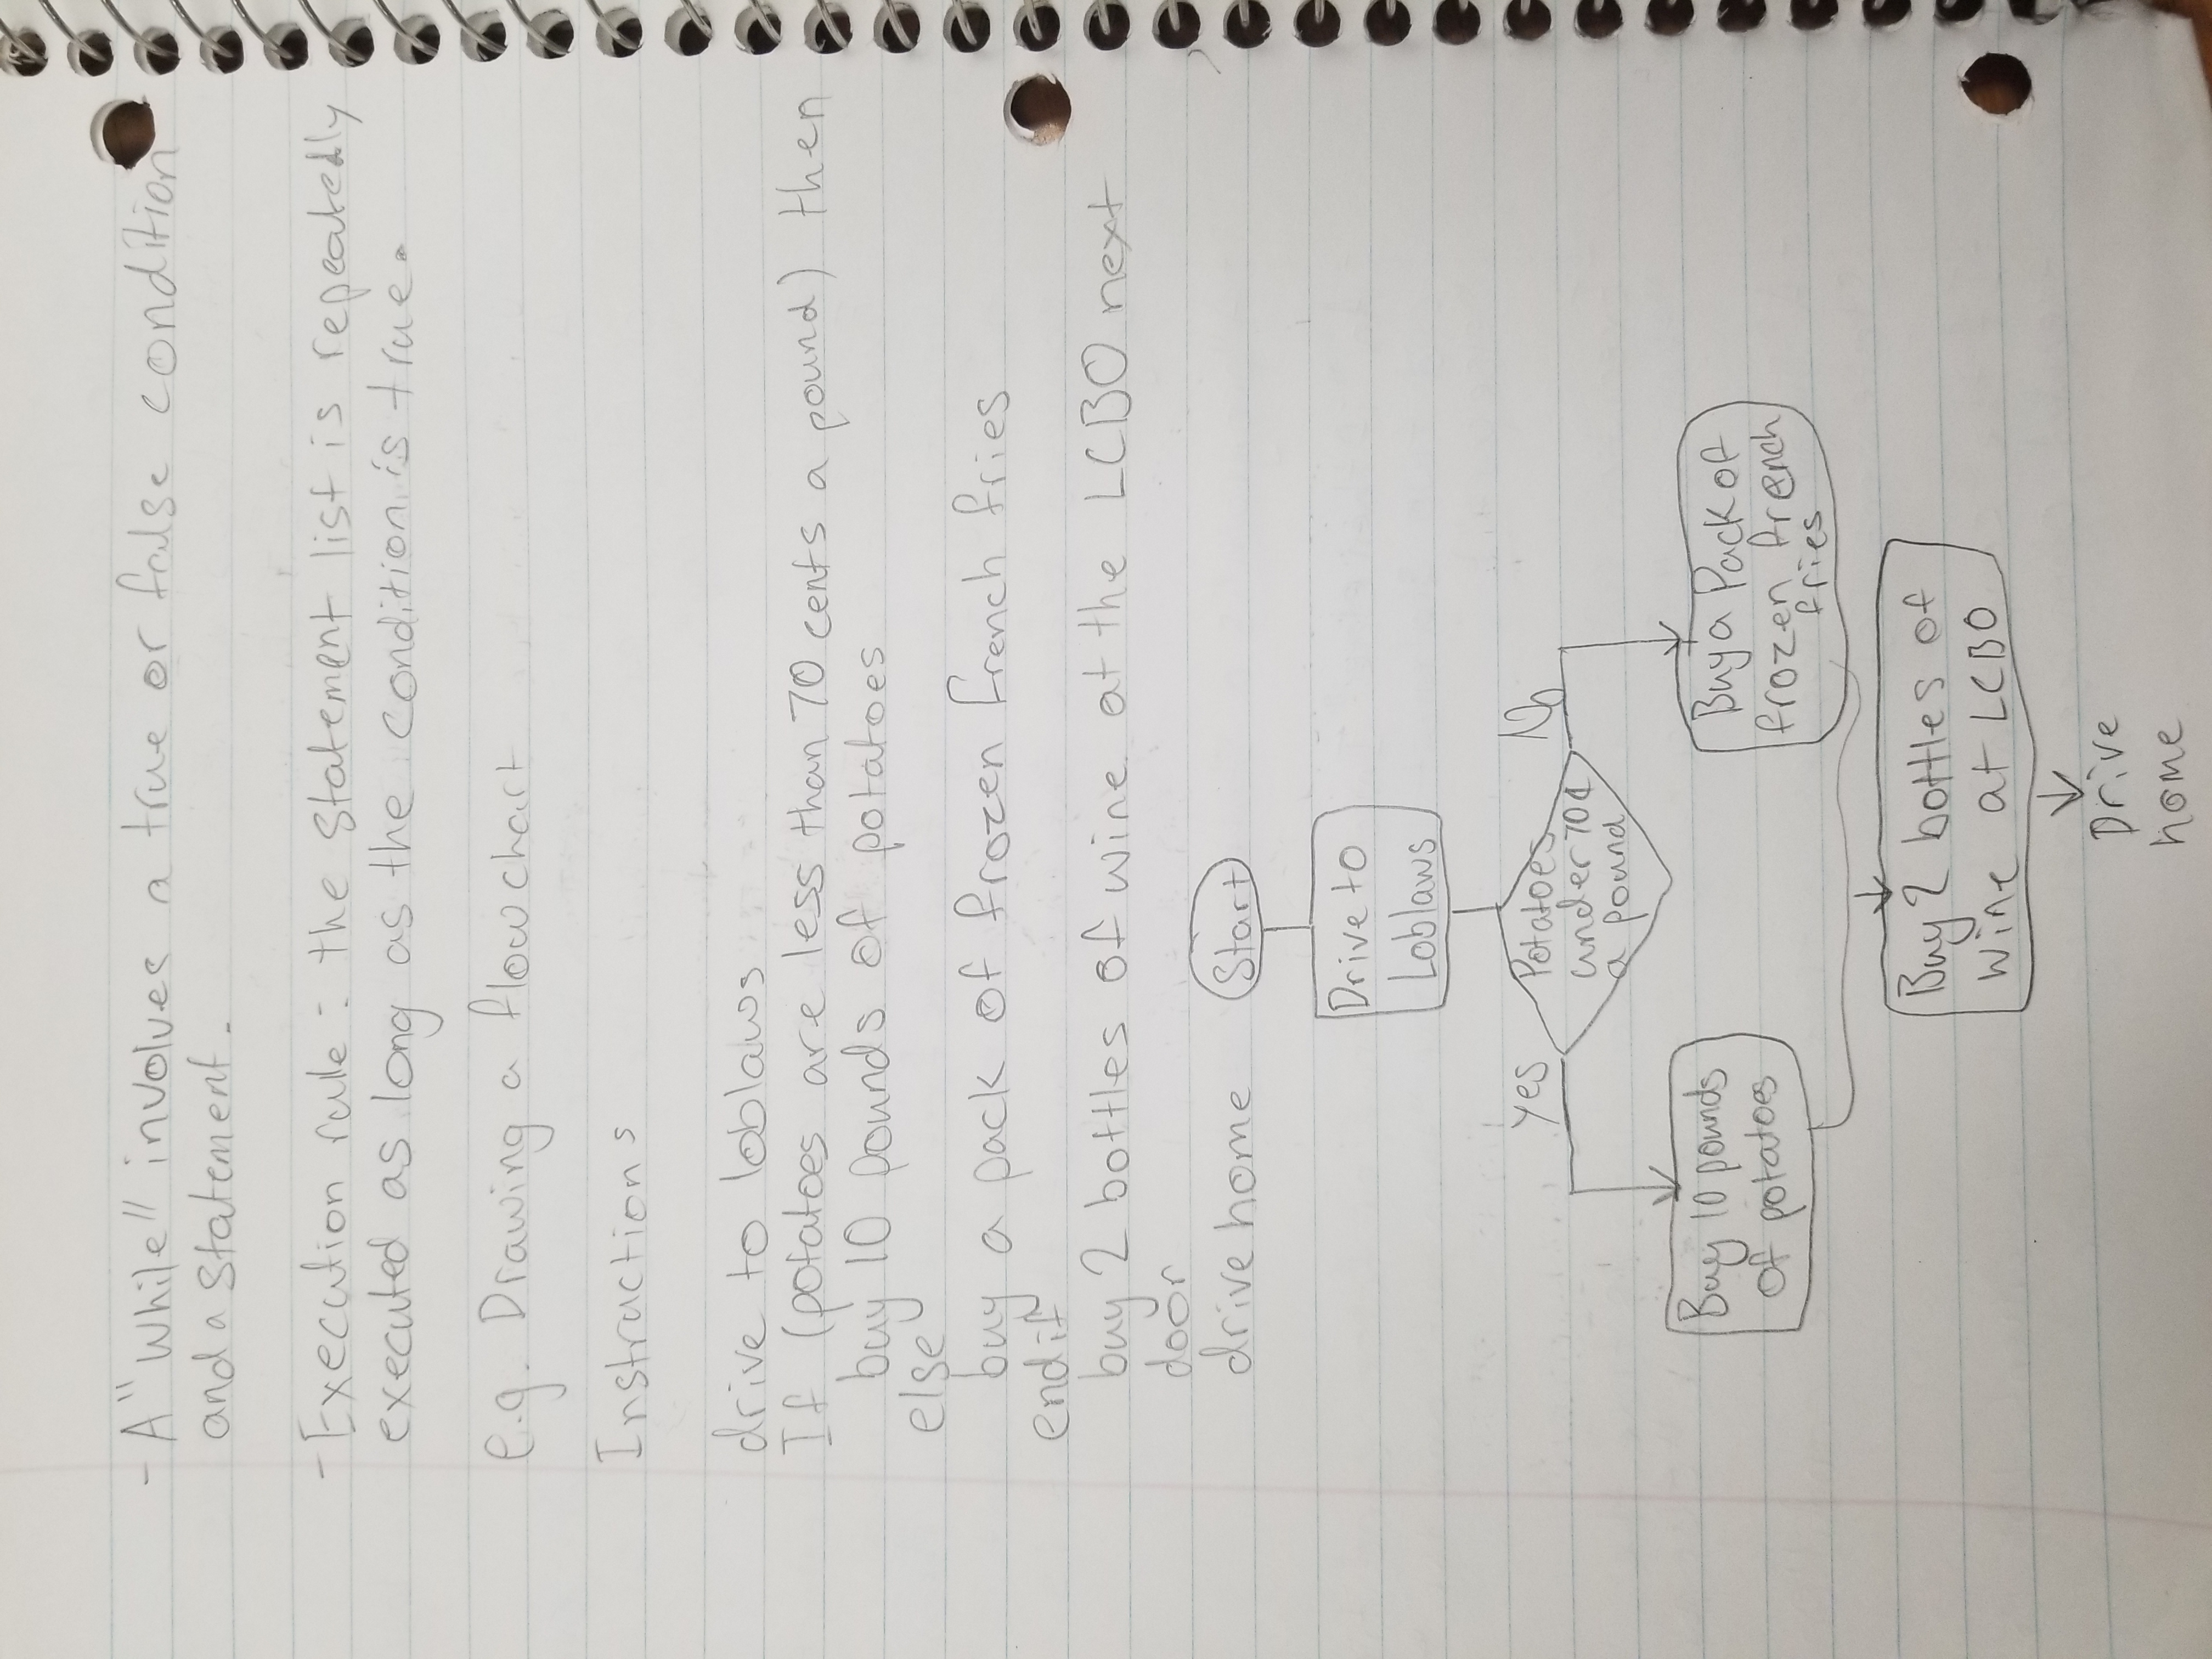 - A "while" involves a true or false condition
and a statement.
- Execution rule: the statement list is repeatedly
executed as long as the condition is true.
e.g. Drawing a flowchart
Instructions
drive to loblaws
If (potatoes are less than 70 cents a pound) then
buy 10 pounds of potatoes
else
buy a pack of frozen french fries
endif
buy 2 bottles of wine at the LCBO next
door
drive home
Start
Drive to
Loblaws
Potatoes
under 70¢
a pound
Yes
No
Buy 10 pounds
of potatoes
Buy a Pack of
frozen french
fries
Buy 2 bottles of
wine at LCBO
Drive
home